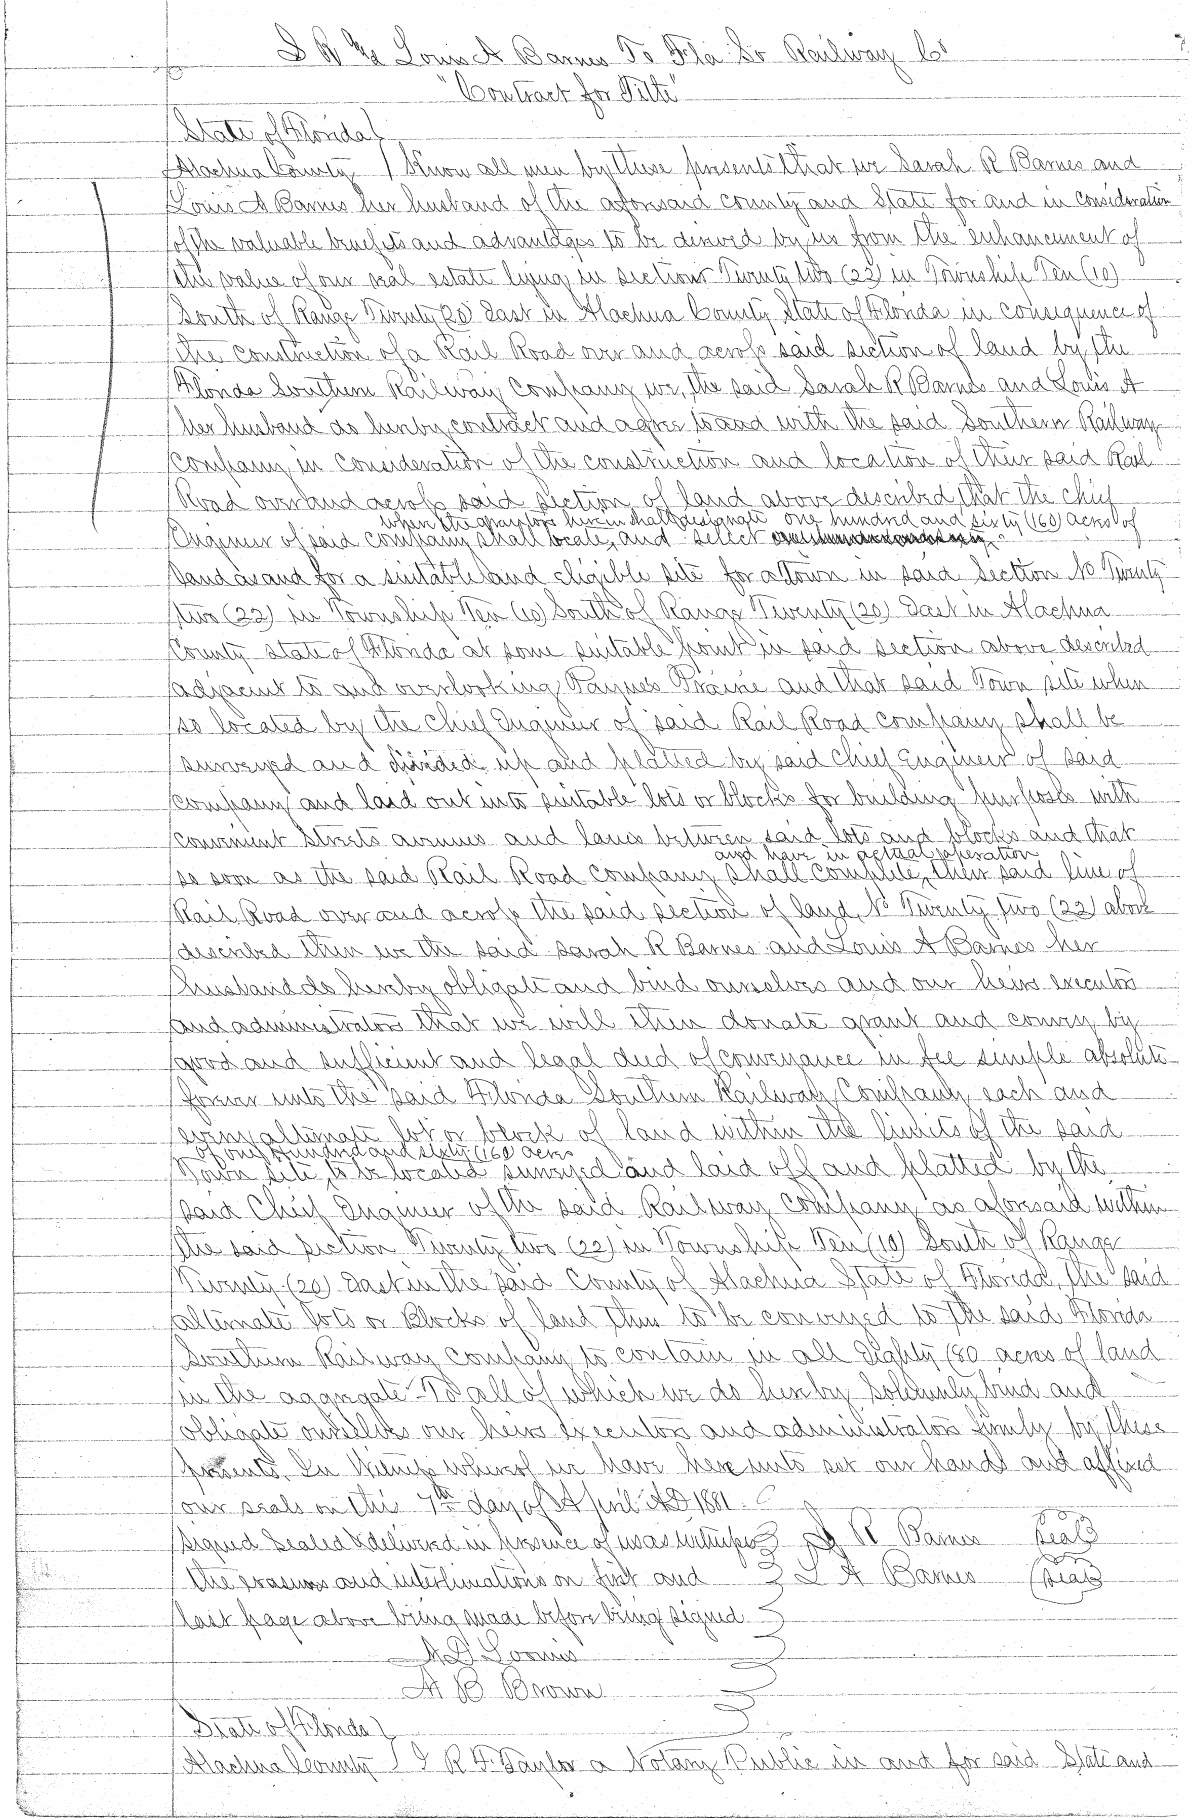 S R & Louis A Barnes To Fla So Railway Co
"Contract for Title"
State of Florida }
Alachua County } Know all men by these presents that we Sarah R Barnes and
Louis A Barnes her husband of the aforsaid county and State for and in consideration
of the valuable benefits and advantages to be derived by us from the enhancement of
the value of our real estate lying in section Twenty two (22) in Township Ten (10)
South of Range Twenty (20) East in Alachua County State of Florida in consequence of
the construction of a Rail Road over and across said section of land by the
Florida Southern Railway Company we, the said Sarah R Barnes and Louis A
her husband do hereby contract and agree to and with the said Southern Railway
Company in consideration of the construction and location of their said Rail
Road over and across said section of land above described that the chief
when the grantors herein shall designate one hundred and sixty (160) acres of
Engineer of said company shall locate, and select
land as and for a suitable and eligible site for a Town in said Section No Twenty
two (22) in Township Ten (10) South of Range Twenty (20) East in Alachua
County state of Florida at some suitable point in said section above described
adjacent to and overlooking Paynes Prairie and that said Town site when
so located by the Chief Engineer of said Rail Road company shall be
surveyed and divided up and platted by said Chief Engineer of said
company and laid out into suitable lots or blocks for building purposes with
convenient Streets avenues and lanes between said lots and blocks and that
and have in actual operation
so soon as the said Rail Road company shall complete, their said line of
Rail Road over and across the said section of land, No Twenty two (22) above
described then we the said Sarah R Barnes and Louis A Barnes her
husband do hereby obligate and bind ourselves and our heirs executors
and administrators that we will then donate grant and convey by
good and sufficient and legal deed of conveyance in fee simple absolute
forever unto the said Florida Southern Railway Company each and
every alternate lot or block of land within the limits of the said
of one hundred and sixty (160) acres
Town site, to be located surveyed and laid off and platted by the
said Chief Engineer of the said Railway Company as aforsaid within
the said section Twenty two (22) in Township Ten (10) South of Range
Twenty (20) East in the said County of Alachua State of Florida, the said
alternate lots or Blocks of land thus to be conveyed to the said Florida
Southern Railway Company to contain in all Eighty (80 acres of land
in the aggregate - To all of which we do hereby Solemnly bind and
obligate ourselves our heirs executors and administrators firmly by these
presents, In Witness whereof we have here unto set our hands and affixed
our seals on this 7th day of April AD 1881
Signed Sealed & delivered in presence of us as witnesses } S R Barnes (Seal)
the erasures and interlineations on first and } L A Barnes (Seal)
last page above being made before being signed
H D Loomis
A B Brown
State of Florida }
Alachua County } I R F Taylor a Notary Public in and for said State and